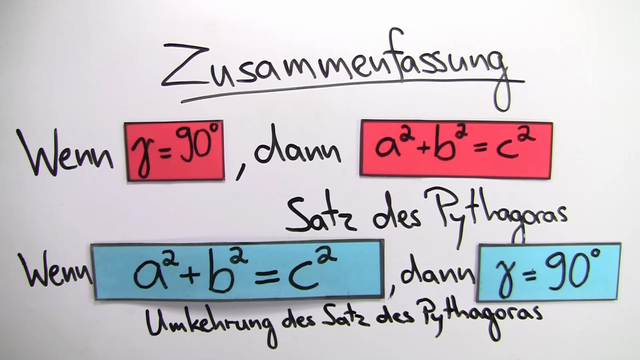 Zusammenfassung
Wenn γ = 90°, dann a² + b² = c²
Satz des Pythagoras
Wenn a² + b² = c², dann γ = 90°
Umkehrung des Satz des Pythagoras